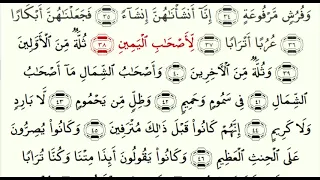 وَفُرُشٍ مَرْفُوعَةٍ ﴿٣٤﴾ إِنَّا أَنْشَأْنَاهُنَّ إِنْشَاءً ﴿٣٥﴾ فَجَعَلْنَاهُنَّ أَبْكَارًا
﴿٣٦﴾ عُرُبًا أَتْرَابًا ﴿٣٧﴾ لِأَصْحَابِ الْيَمِينِ ﴿٣٨﴾ ثُلَّةٌ مِنَ الْأَوَّلِينَ
﴿٣٩﴾ وَثُلَّةٌ مِنَ الْآخِرِينَ ﴿٤٠﴾ وَأَصْحَابُ الشِّمَالِ مَا أَصْحَابُ
الشِّمَالِ ﴿٤١﴾ فِي سَمُومٍ وَحَمِيمٍ ﴿٤٢﴾ وَظِلٍّ مِنْ يَحْمُومٍ ﴿٤٣﴾ لَا بَارِدٍ
وَلَا كَرِيمٍ ﴿٤٤﴾ إِنَّهُمْ كَانُوا قَبْلَ ذَلِكَ مُتْرَفِينَ ﴿٤٥﴾ وَكَانُوا يُصِرُّونَ
عَلَى الْحِنْثِ الْعَظِيمِ ﴿٤٦﴾ وَكَانُوا يَقُولُونَ أَئِذَا مِتْنَا وَكُنَّا تُرَابًا